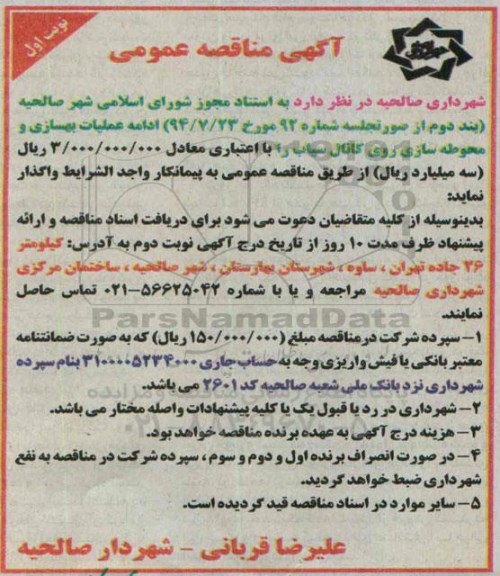 نوبت اول
آگهی مناقصه عمومی
شهرداری صالحیه در نظر دارد به استناد مجوز شورای اسلامی شهر صالحیه
(بند دوم از صورتجلسه شماره ۹۲ مورخ ۹۴/۷/۲۳) ادامه عملیات بهسازی و
محوطه سازی روی کانال سیاب را با اعتباری معادل ۳/۰۰۰/۰۰۰/۰۰۰ ریال
(سه میلیارد ریال) از طریق مناقصه عمومی به پیمانکار واجد الشرایط واگذار
نماید:
بدینوسیله از کلیه متقاضیان دعوت می شود برای دریافت اسناد مناقصه و ارائه
پیشنهاد ظرف مدت ۱۰ روز از تاریخ درج آگهی نوبت دوم به آدرس: کیلومتر
۲۶ جاده تهران ، ساوه ، شهرستان بهارستان ، شهر صالحیه ، ساختمان مرکزی
شهرداری صالحیه مراجعه و یا با شماره ۵۶۶۲۵۰۴۲-۰۲۱ تماس حاصل
نمایند.
ParsNamadData
۱- سپرده شرکت در مناقصه مبلغ (۱۵۰/۰۰۰/۰۰۰ ریال) که به صورت ضمانتنامه
معتبر بانکی یا فیش واریزی وجه به حساب جاری ۳۱۰۰۰۰۵۲۳۴۰۰۰ بنام سپرده
شهرداری نزد بانک ملی شعبه صالحیه کد ۲۶۰۱ می باشد.
۲- شهرداری در رد یا قبول یک یا کلیه پیشنهادات واصله مختار می باشد.
۳- هزینه درج آگهی به عهده برنده مناقصه خواهد بود.
۴- در صورت انصراف برنده اول و دوم و سوم ، سپرده شرکت در مناقصه به نفع
شهرداری ضبط خواهد گردید.
۵- سایر موارد در اسناد مناقصه قید گردیده است.
علیرضا قربانی - شهردار صالحیه